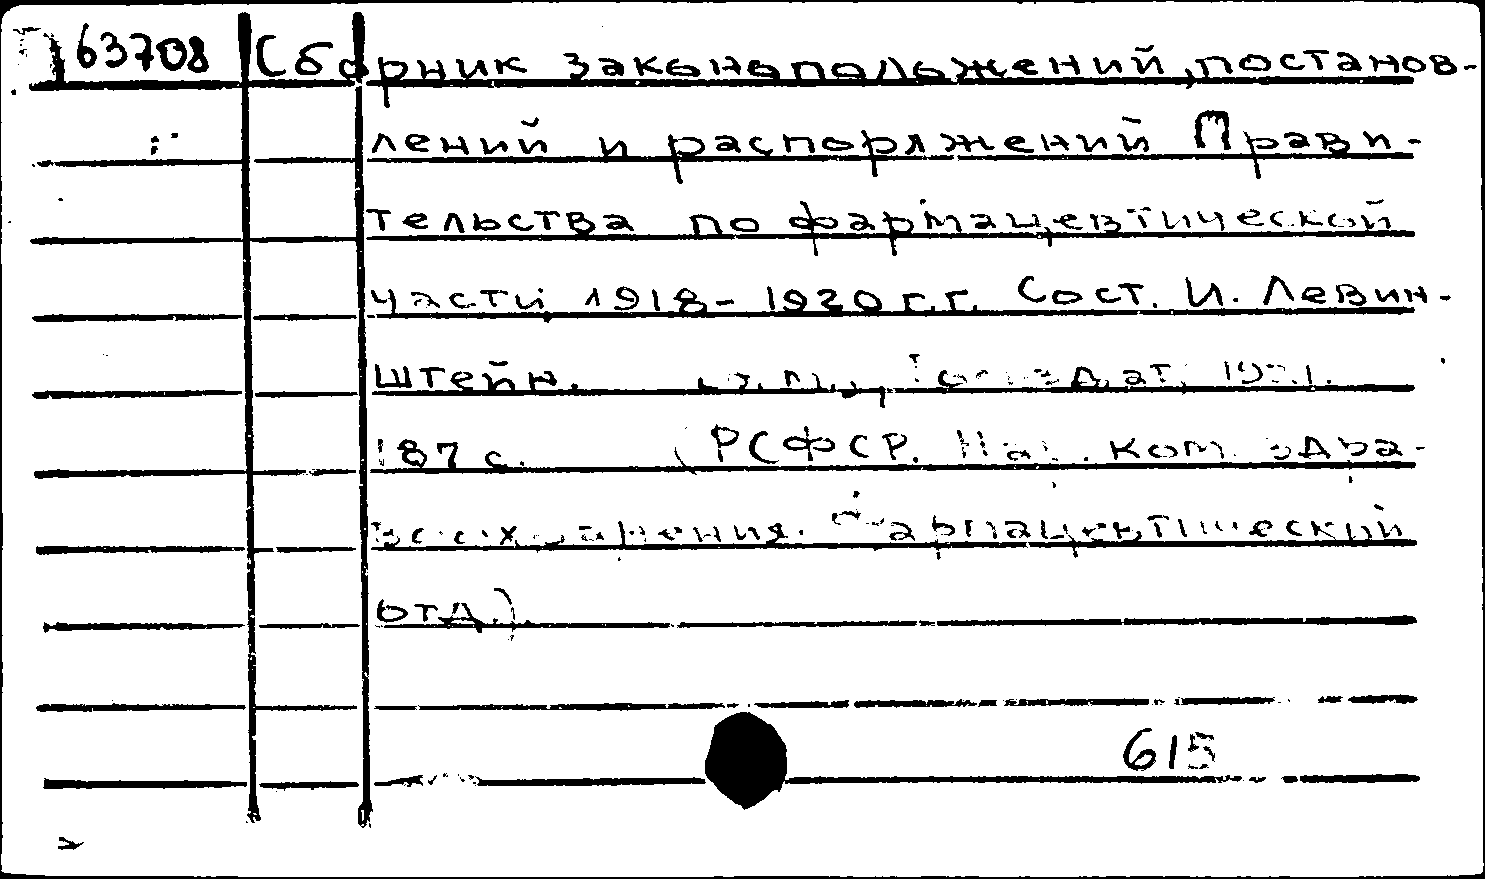 63708 Сборник законоположений, постанов-
лений и распоряжений Прави-
тельства по фармацевтической
части, 1918-1920 г.г. Сост. И. Левин-
штейн. Госиздат,
187 с. (РСФСР. Нар. ком. здра-
воохранения. Фармацевтический
отд.).
615